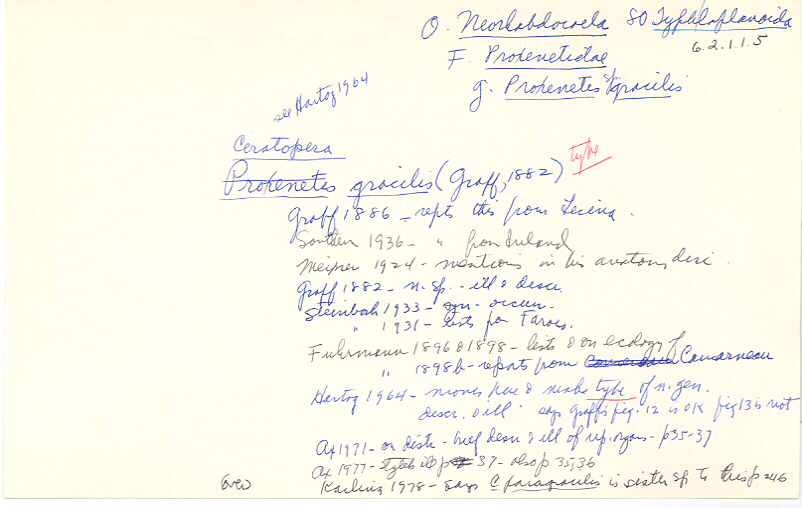 O. Neorhabdocoela SO Typhloplanoida
6.2.1.1.5
F. Proxenetidae
g. Proxenetes gracilis
see Hartog 1964
Ceratopera
Proxenetes gracilis (Graff, 1882) type
Graff 1886 - repts this from Lesina.
Southern 1936 - " from Ireland
Meixner 1924 - mentions in his anatomy disc.
Graff 1882 - n. sp. - ill & descr.
Steinbock 1933 - syn - occurr.
" 1931 - lists for Faroes.
Fuhrmann 1896 & 1898 - lists & on ecology of
" 1898b - reports from Concarneau
Hartog 1964 - moves here & makes type of n. gen.
descr. & ill says Graff's fig. 12 is OK fig 13 is not
Ax 1971 - on distr - brief descr & ill of rep. organs - p35-37
Ax 1977 - stylet ill p 37 - also p 35, 36
Karling 1978 - says C. paragracilis is sister sp to this p 246
(over)